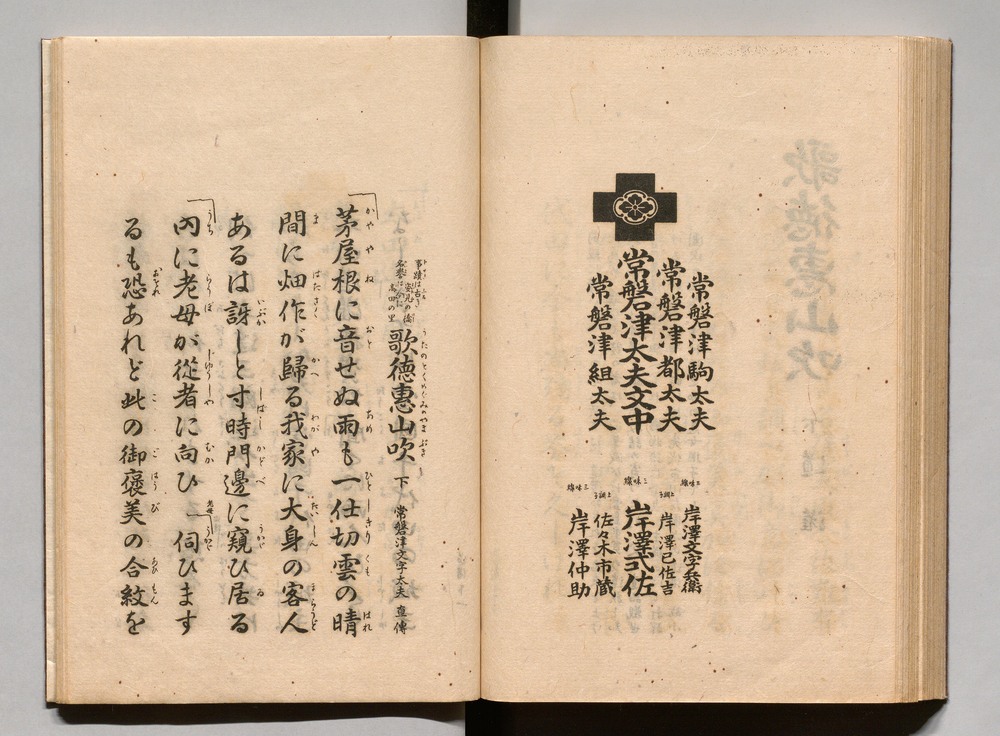 常磐津駒太夫
常磐津都太夫
常磐津太夫文中
常磐津組太夫
三味線
岸澤文字兵衛
上調子
岸澤巳佐吉
三味線
岸澤式佐
上調子
佐々木市蔵
岸澤仲助
事蹟は古き
姿見の橋
名誉は
高田の里
歌徳恵山吹
下
常磐津文字太夫 直傳
茅屋根に音せぬ雨も一仕切雲の晴
間に畑作が歸る我家に大身の客人
あるは訝しと寸時門邊に窺ひ居る
内に老母が從者に向ひ 老母 伺ひます
るも恐あれど此の御褒美の合紋を